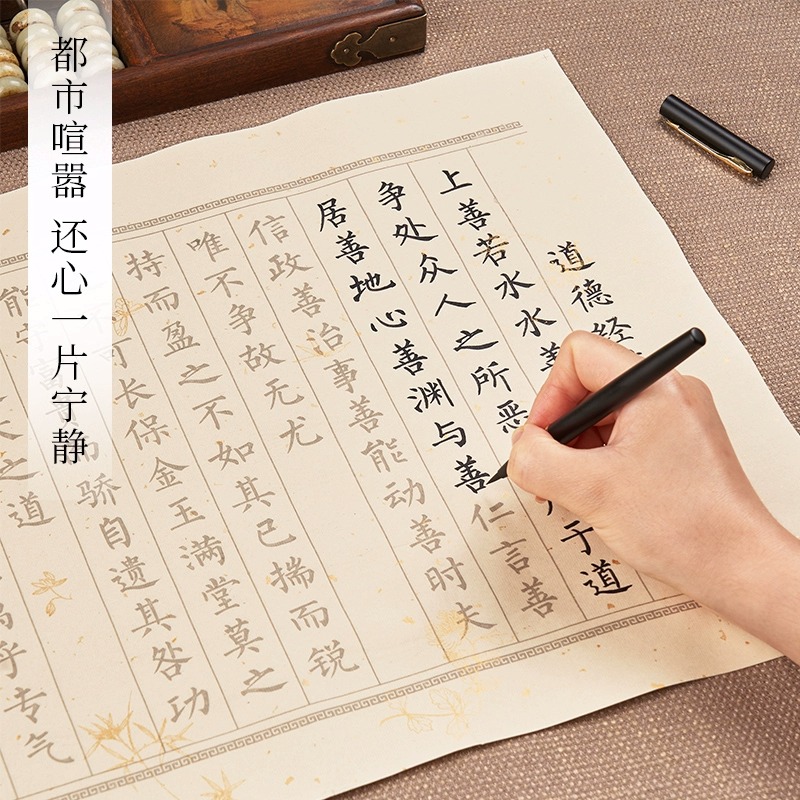 都市喧嚣 还心一片宁静
道德经
上善若水水善
争处众人之所恶于道
居善地心善渊与善仁言善
信政善治事善能动善时夫
唯不争故无尤
持而盈之不如其已揣而锐
不可长保金玉满堂莫之
能守富贵而骄自遗其咎功
天之道
乎专气